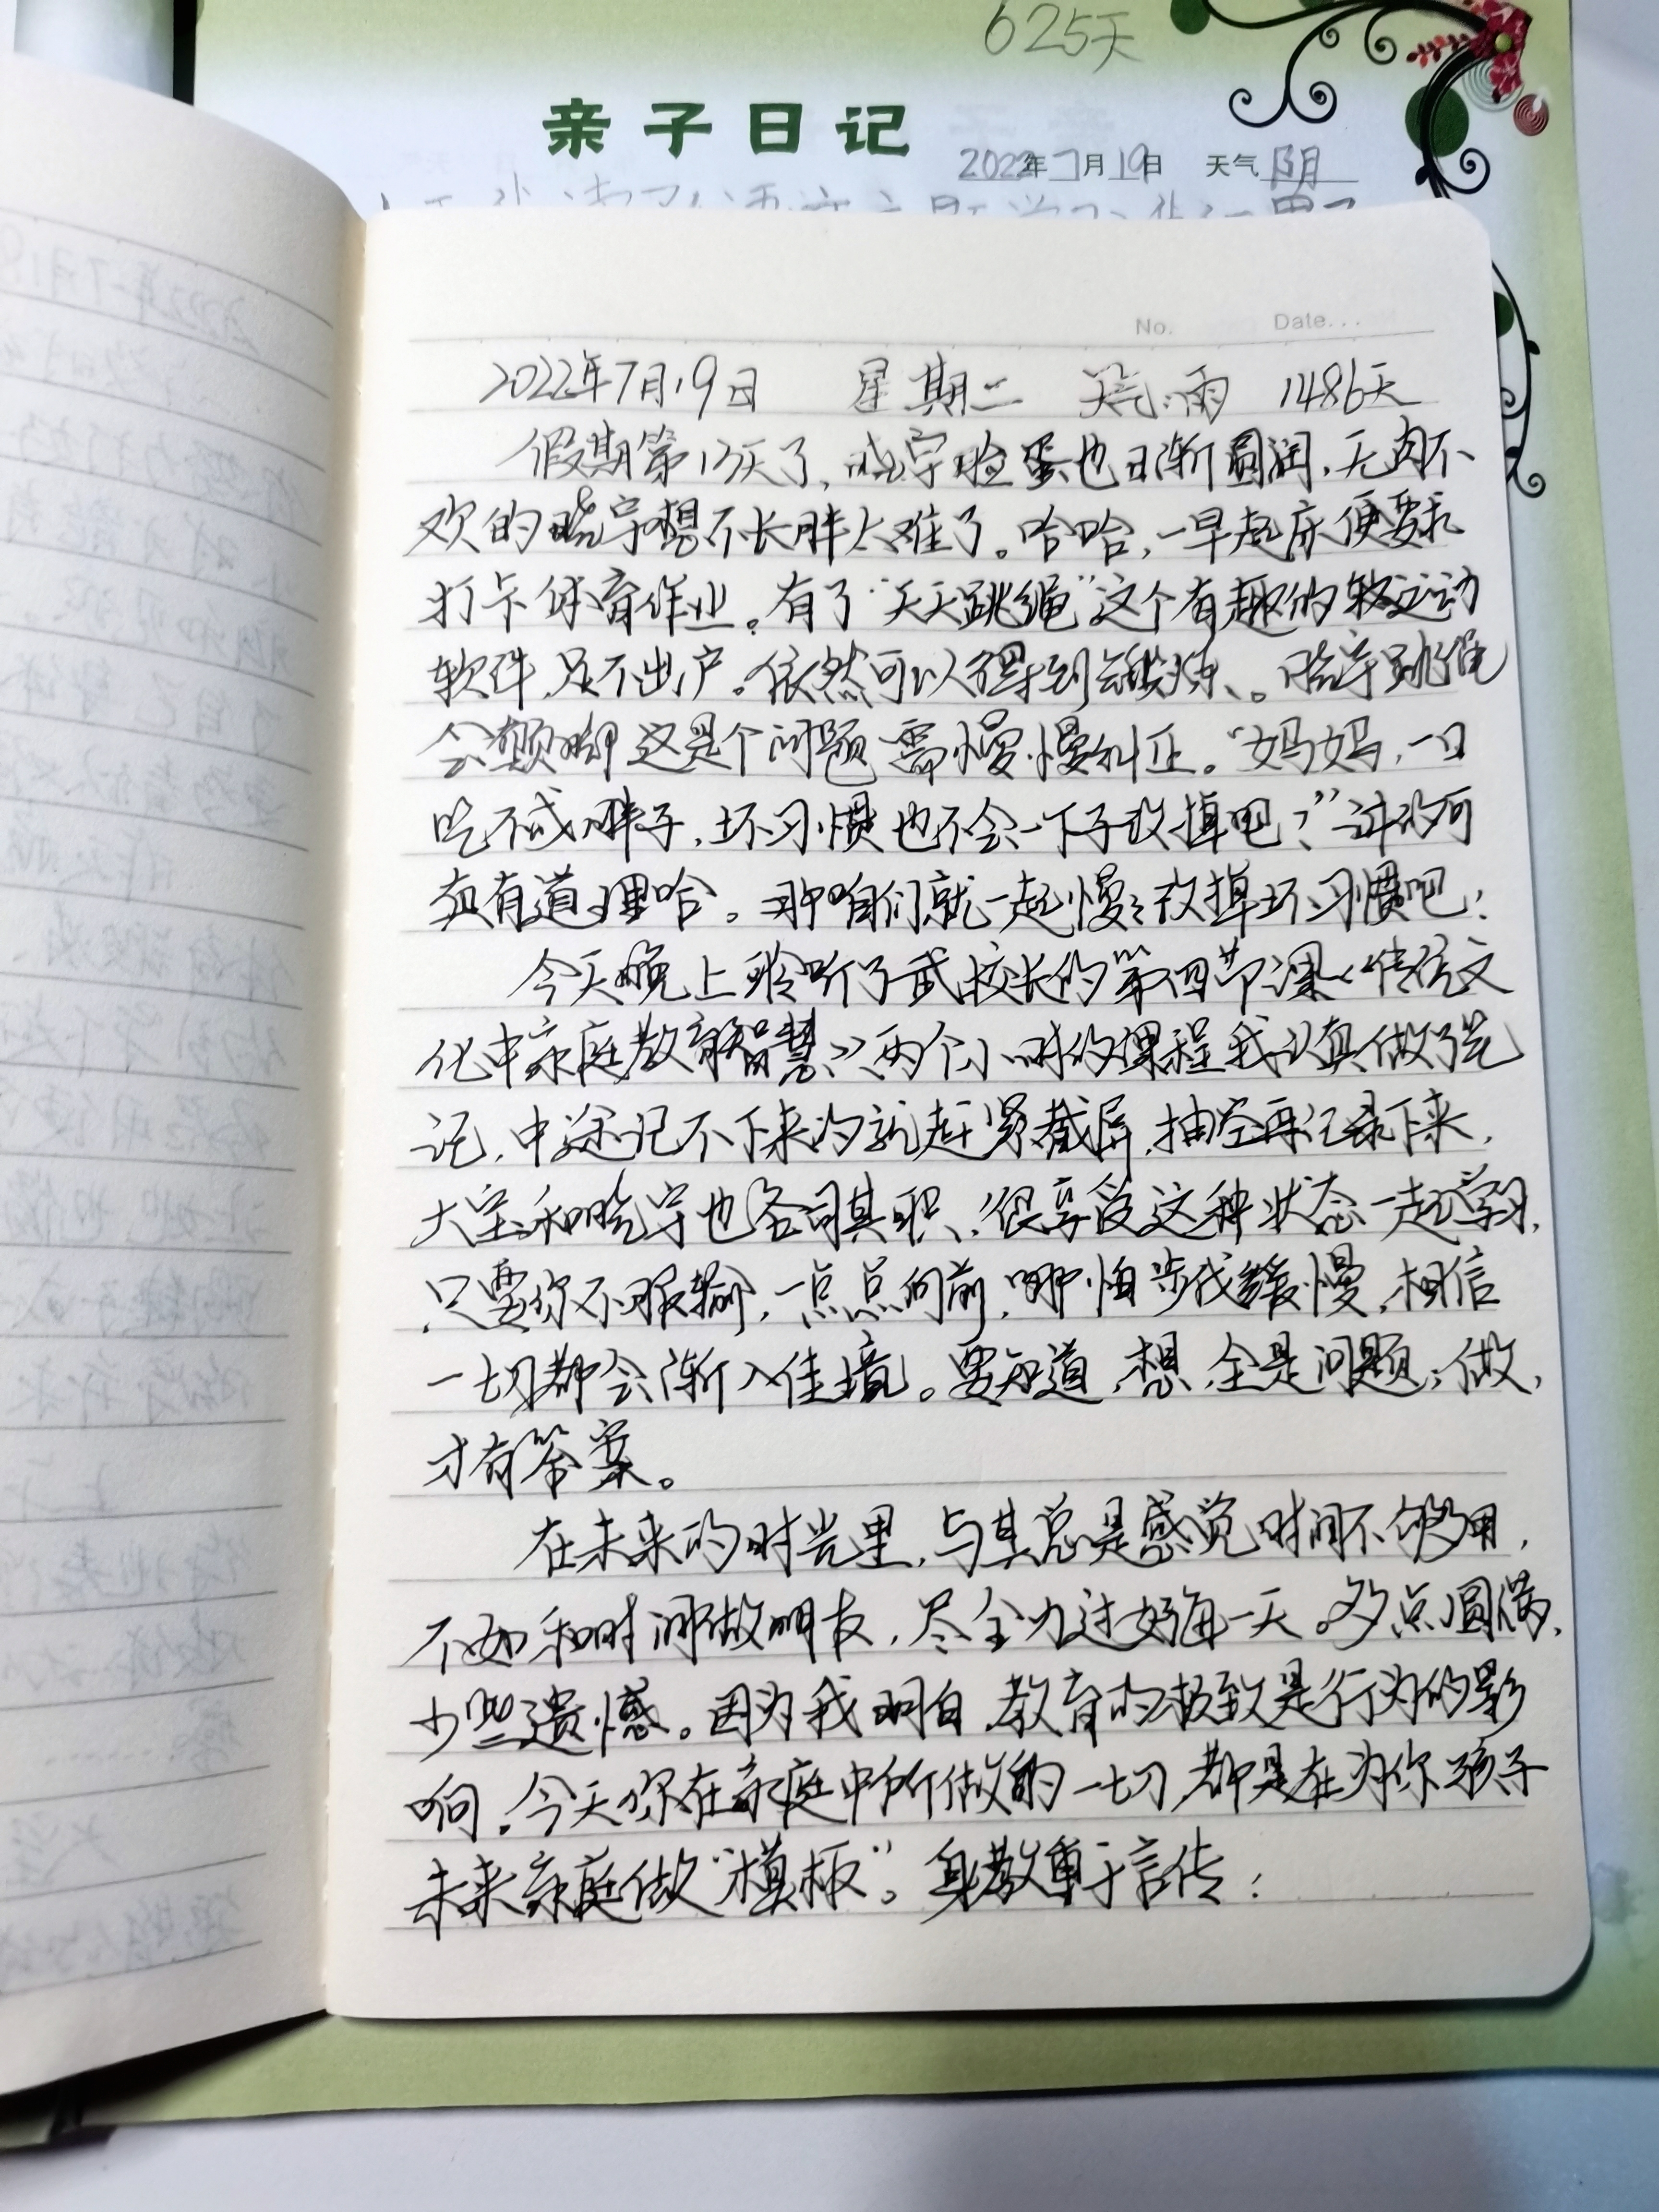 625天
亲子日记
2022年7月19日 天气阴
No. Date...
2022年7月19日 星期二 天气:雨 1486天
假期第13天了,晓宇脸蛋也日渐圆润,无肉不
欢的晓宇想不长胖太难了。哈哈,一早起床便要求
打卡体育作业。有了“天天跳绳”这个有趣的软运动
软件,足不出户。依然可以得到锻炼、。晓宇跳绳
会颠脚这是个问题需慢慢纠正。“妈妈,一口
吃不成胖子,坏习惯也不会一下子改掉吧?”讲的可
真有道理哈。那咱们就一起慢慢改掉坏习惯吧!
今天晚上聆听了武校长的第四节课《传统文
化中家庭教育智慧》两个小时的课程我认真做了笔
记,中途记不下来的就赶紧截屏,抽空再记录下来,
大宝和晓宇也各司其职、很享受这种状态一起学习,
只要你不服输,一点点向前,哪怕步伐缓慢,相信
一切都会渐入佳境。要知道,想,全是问题;做,
才有答案。
在未来的时光里,与其总是感觉时间不够用,
不如和时间做朋友,尽全力过好每一天。多点圆满,
少些遗憾。因为我明白,教育的极致是行为的影
响,今天你在家庭中所做的一切,都是在为你孩子
未来家庭做“模板”。身教重于言传!